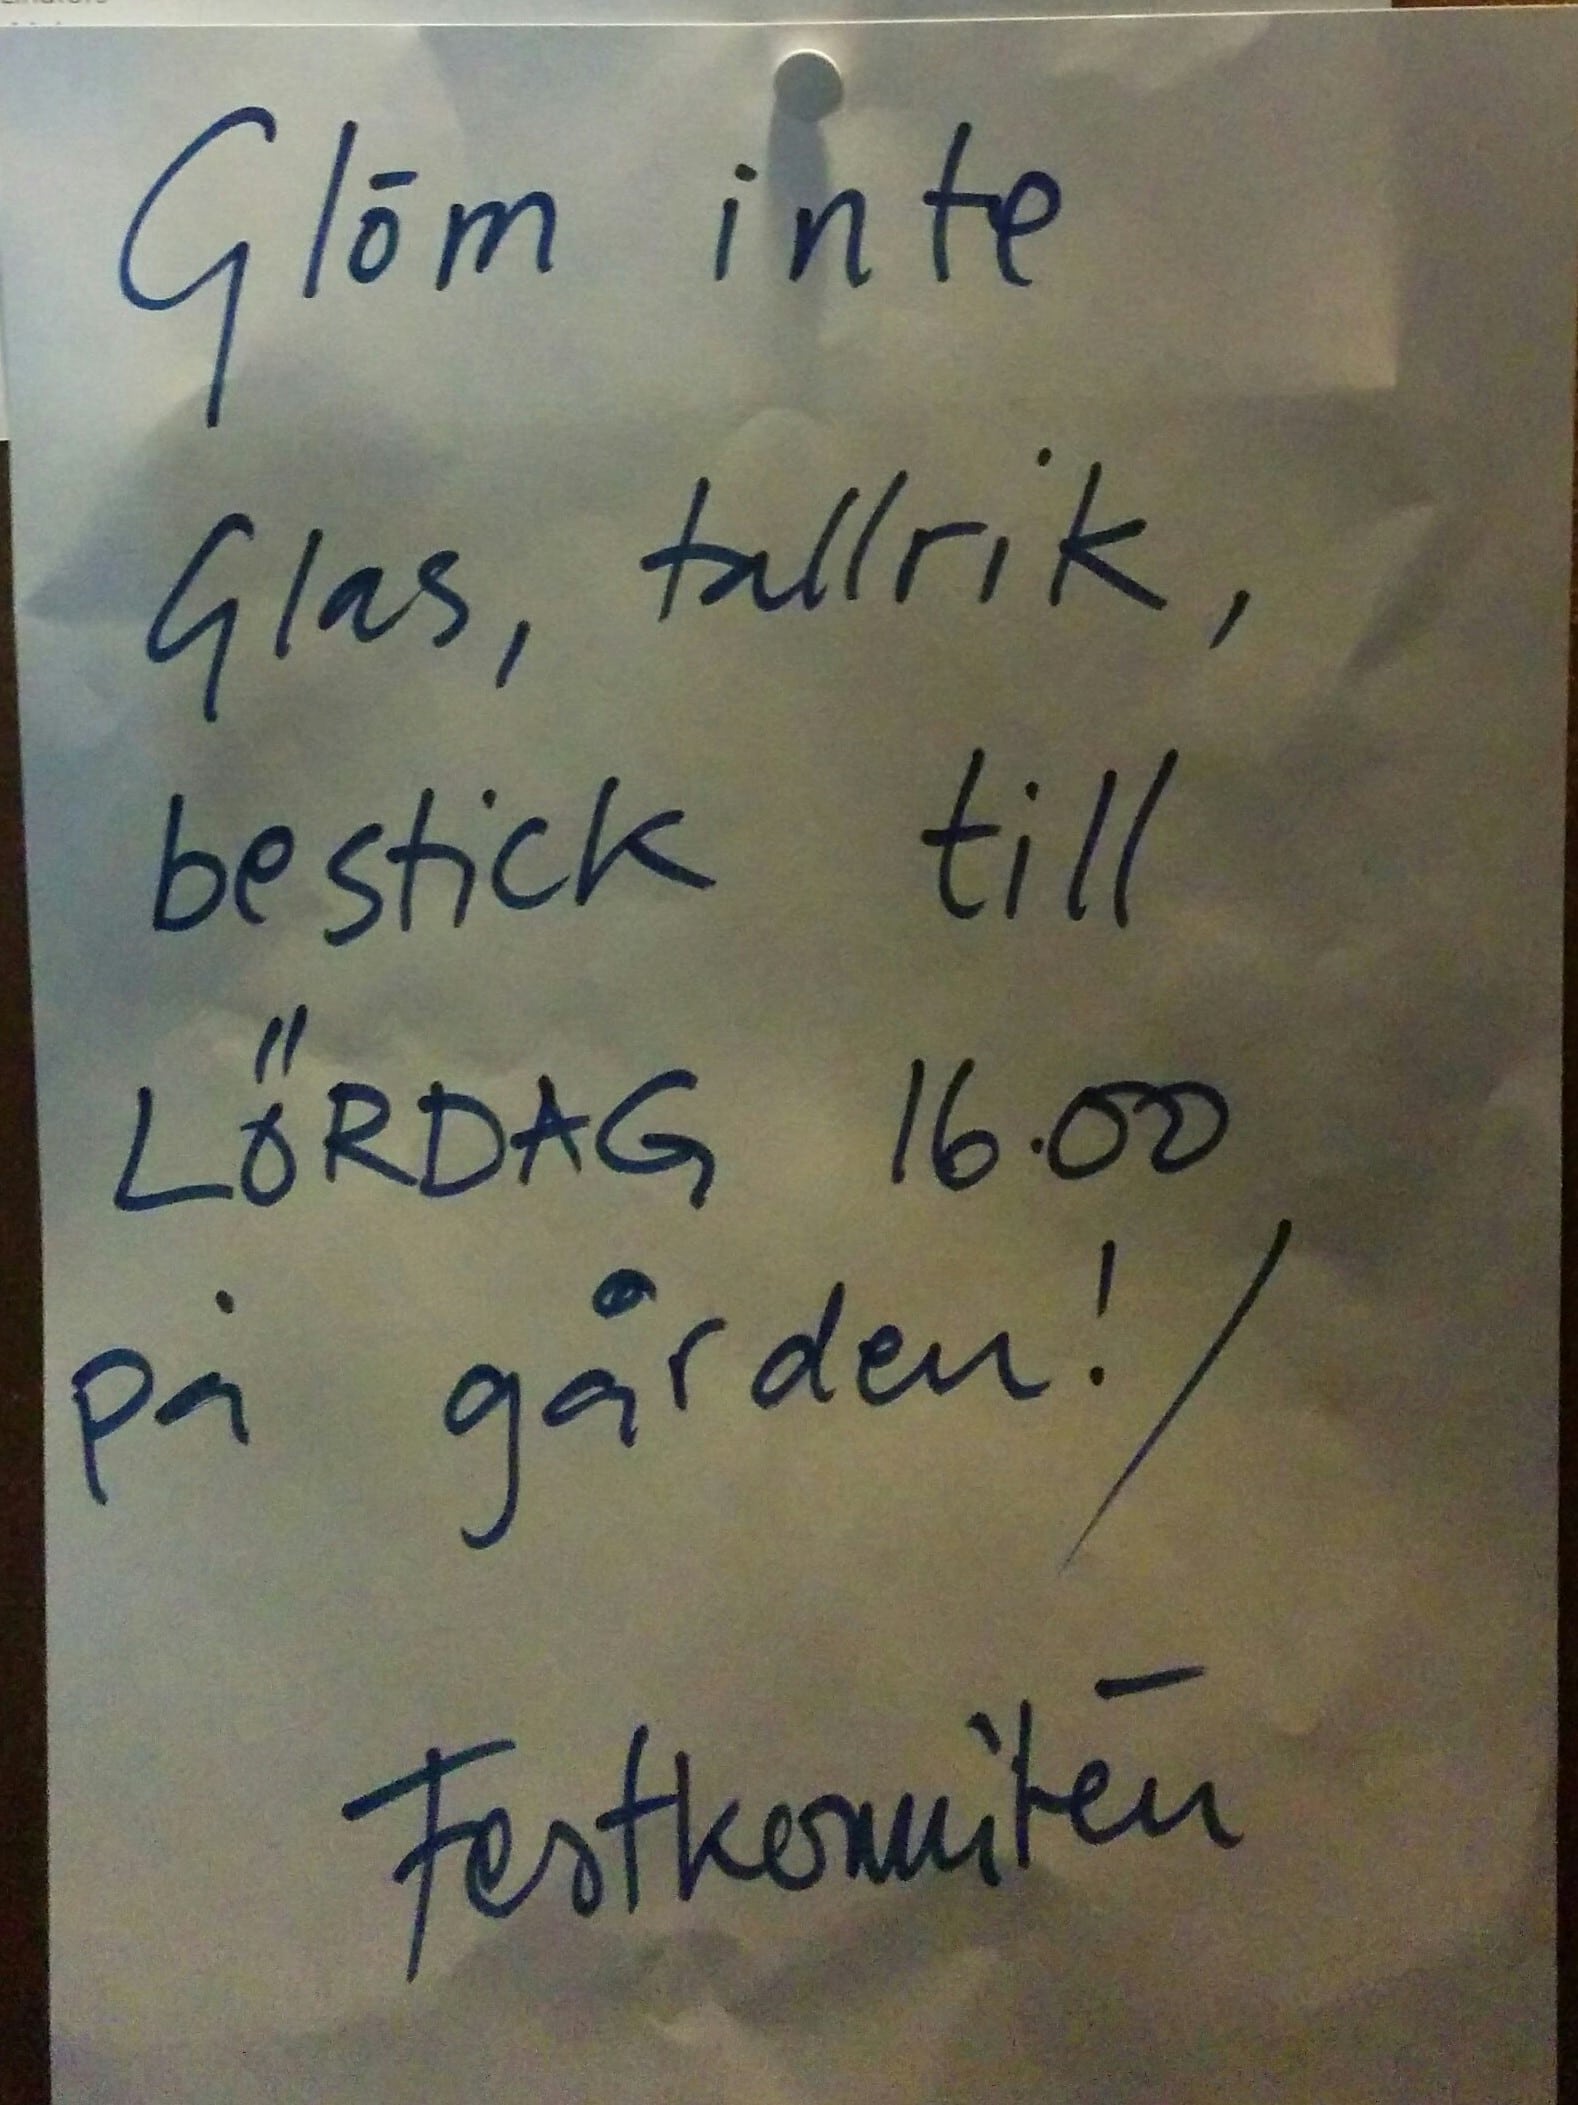 Glöm inte
Glas, tallrik,
bestick till
LÖRDAG 16.00
på gården! /
Festkommitén